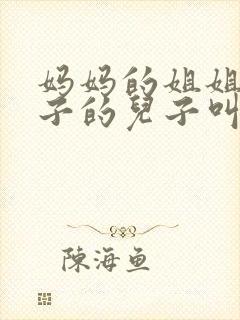 妈妈的姐姐
子的兒子叫
陳海鱼